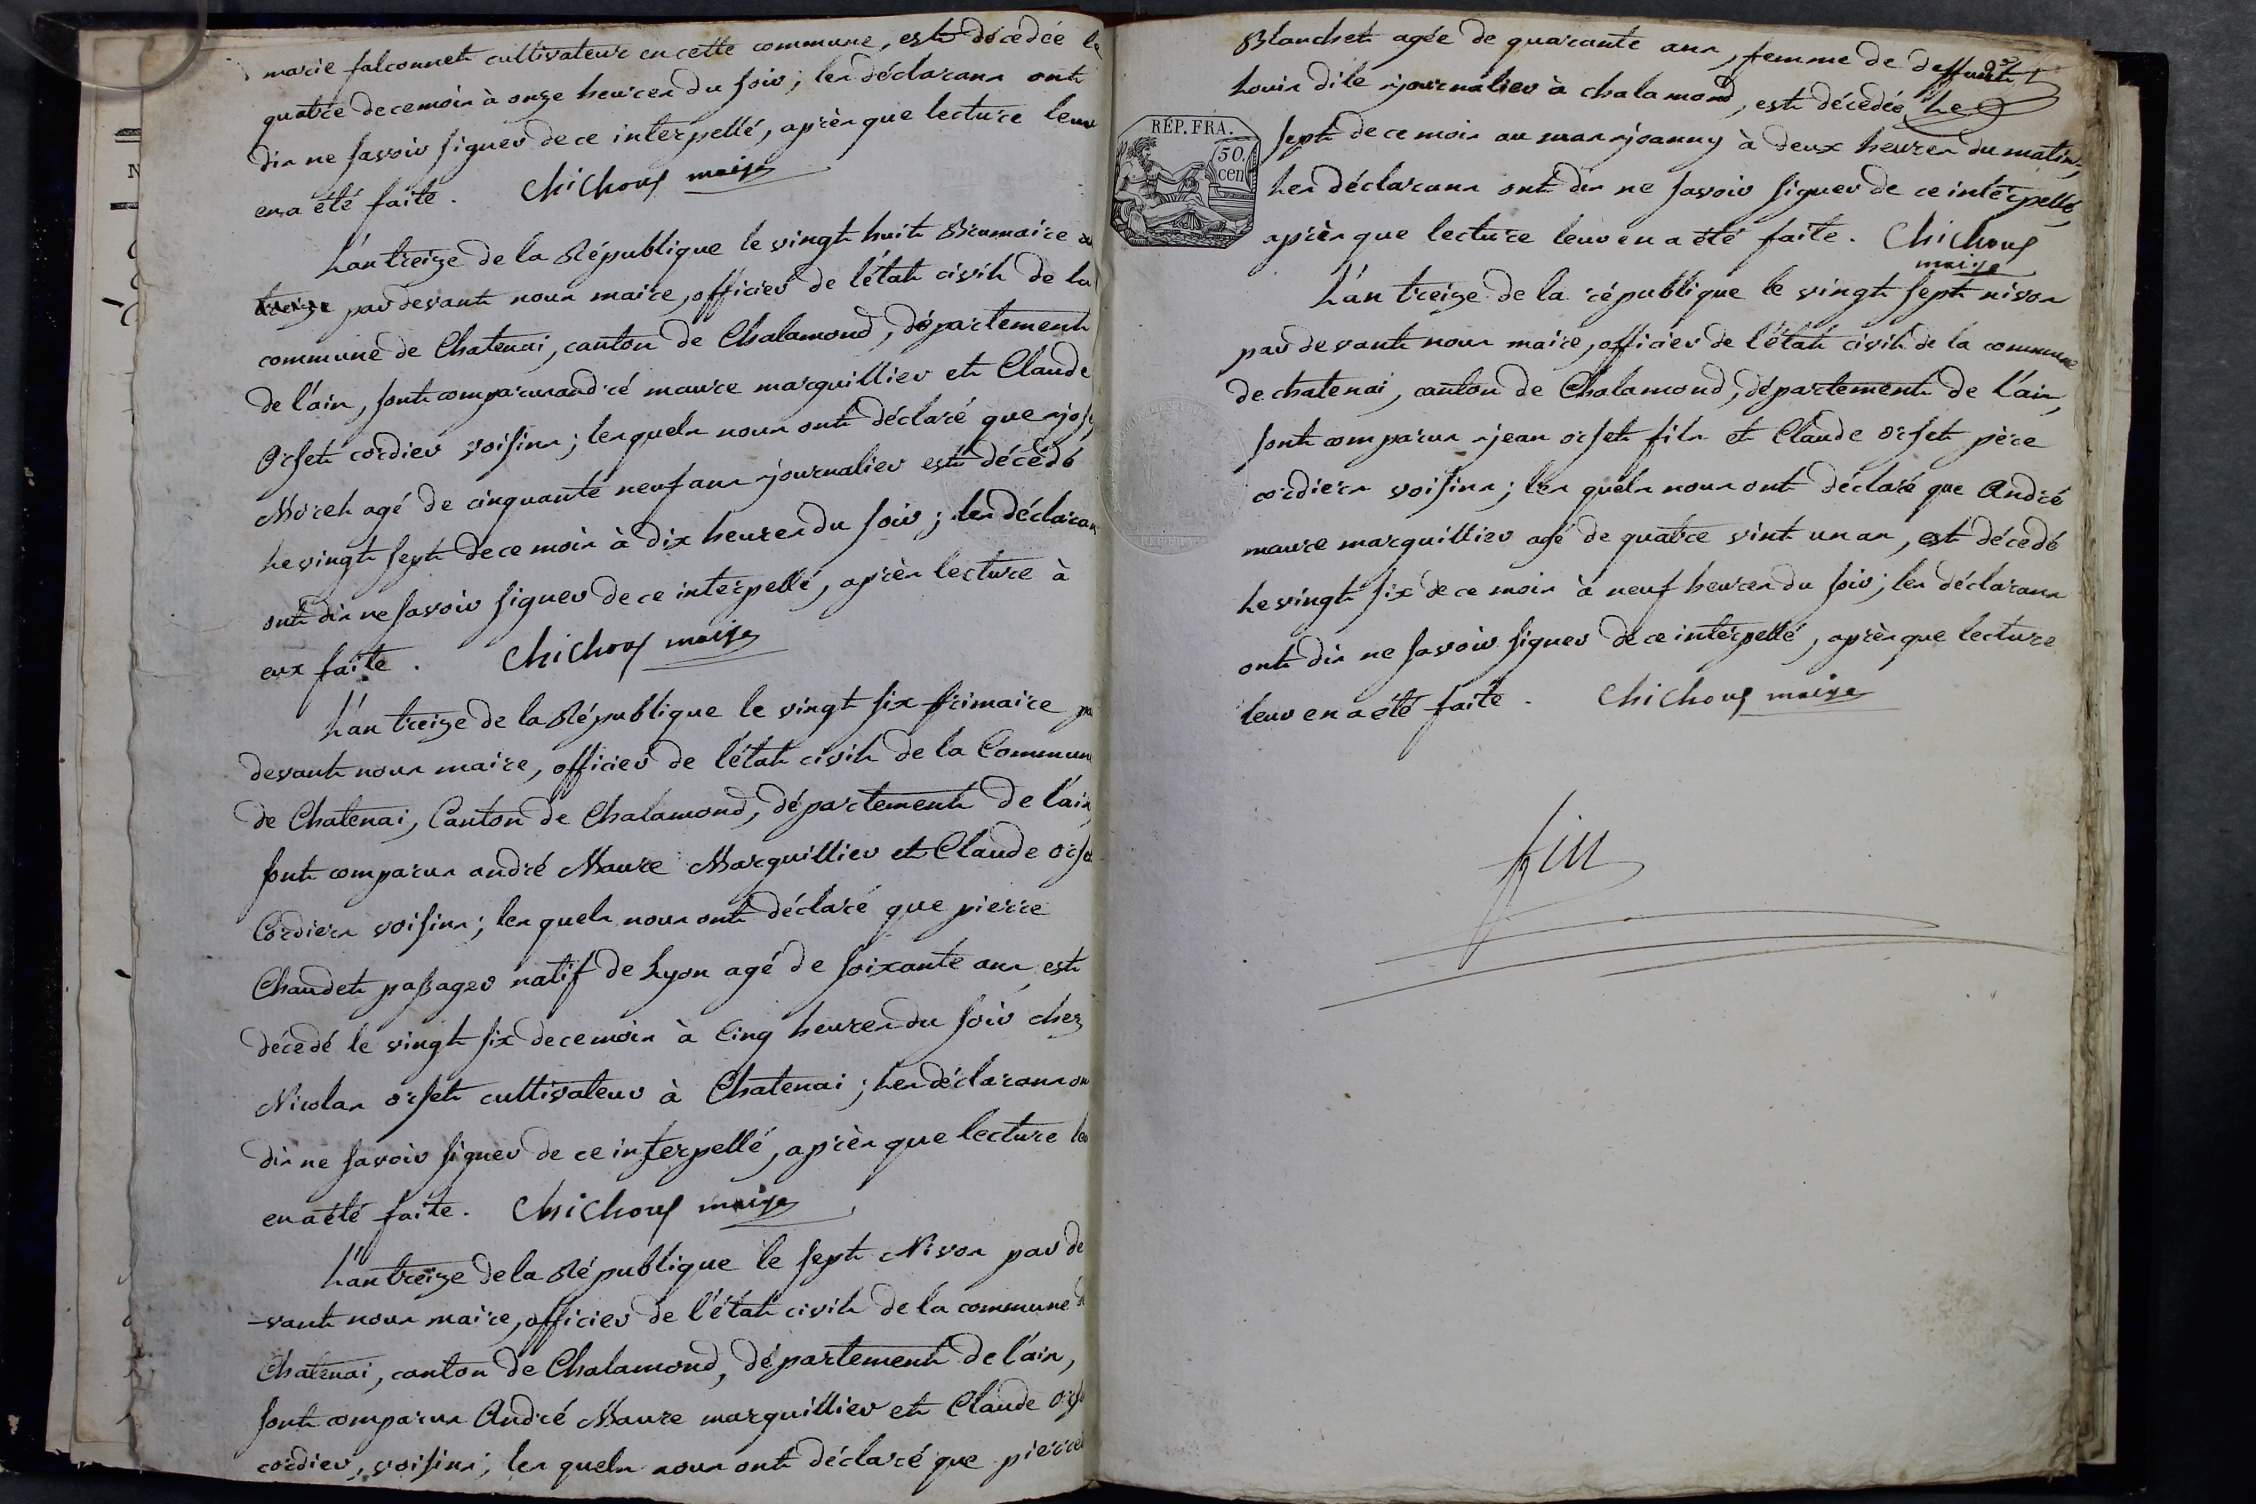 marie falconnet cultivateur en cette commune, est décédée le
quatre de ce mois à onze heures du soir; les déclarans ont
dis ne savoir signer de ce interpellé, après que lecture leur
en a été faite. Chichoux maire
L'an treize de la République le vingt huit Brumaire
par devant nous maire, officier de l'état civil de la
commune de Chatenai, canton de Chalamond, département
de l'ain, sont comparus andré maure marguillier et Claude
Orset cordier voisins; lesquels nous ont déclaré que jos
Morel agé de cinquante neuf ans journalier est décédé
le vingt sept de ce mois à dix heures du soir; les déclarans
ont dis ne savoir signer de ce interpellé, après lecture à
eux faite. Chichoux maire
L'an treize de la République le vingt six frimaire par
devant nous maire, officier de l'état civil de la Commune
de Chatenai, Canton de Chalamond, département de l'ain,
sont comparus andré Maure Marguillier et Claude Orset
Cordiers voisins; les quels nous ont déclaré que pierre
Chaudet passager natif de Lyon agé de soixante ans est
décédé le vingt six de ce mois à Cinq heures du soir chez
Nicolas orset cultivateur à Chatenai; les déclarans ont
dis ne savoir signer de ce interpellé, après que lecture leur
en a été faite. Chichoux maire
L'an treize de la République le sept Nivos par de
-vant nous maire, officier de l'état civil de la commune de
Chatenai, canton de Chalamond, département de l'ain,
sont comparus André Maure marguillier et Claude Orset
cordier, voisins; les quels nous ont déclaré que pierrette
Blanchet agée de quarante ans, femme de deffunt
louis dile journalier à chalamond, est décédée le
RÉP. FRA.
50.
cen
sept de ce mois au mas joanny à deux heures du matin,
les déclarans ont dis ne savoir signer de ce interpellé,
après que lecture leur en a été faite. Chichoux
maire
L'an treize de la république le vingt sept nivos
par devant nous maire, officier de l'état civil de la commune
de chatenai, canton de Chalamond, département de l'ain,
sont comparus jean orset fils et Claude orset père
cordiers voisins; les quels nous ont déclaré que André
maure marguillier agé de quatre vint un an, est décédé
le vingt six de ce mois à neuf heures du soir; les déclarans
ont dis ne savoir signer de ce interpellé, après que lecture
leur en a été faite. Chichoux maire
fin